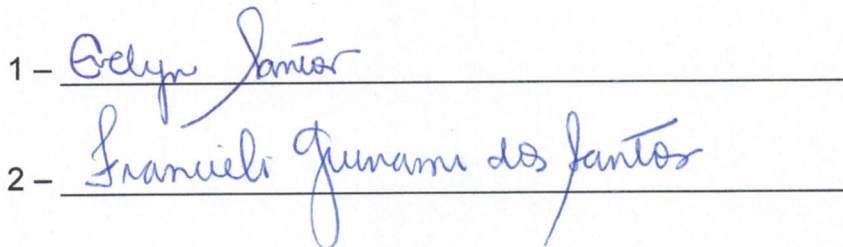 1 – Evelyn Santos
2 – Francieli dos Santos